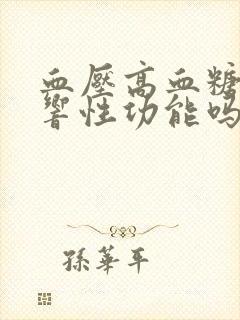 血壓高血糖
響性功能吗
孫華平